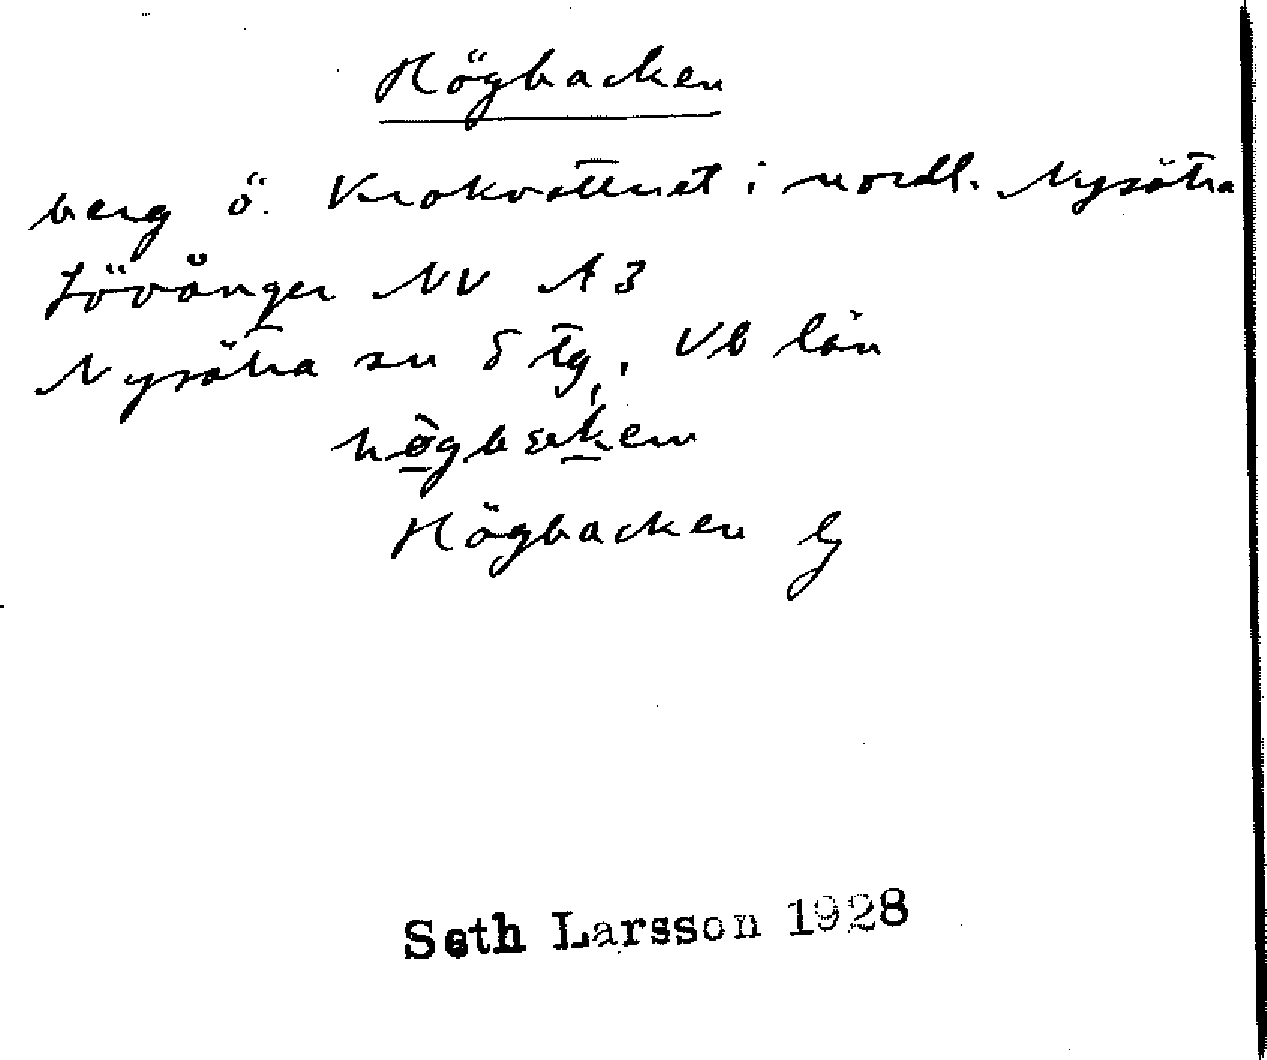 Högbacken
berg ö. Krokvattnet i nordl. Nysätra
Lövånger NV A 3
Nysätra sn S tg, Vb län
Högbacken
Seth Larsson 1928